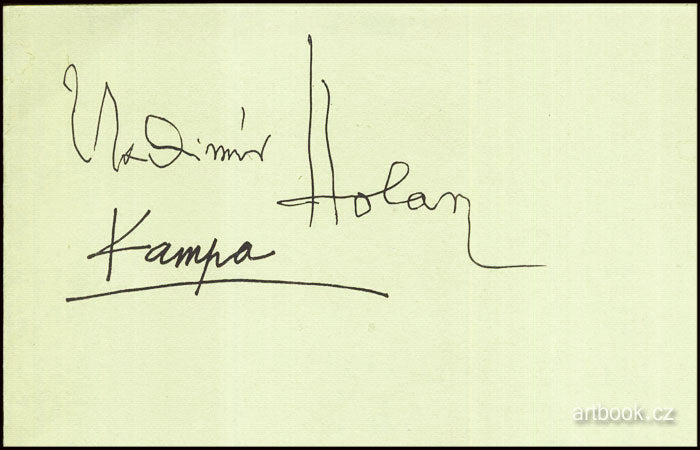 Vladimír Holan
Kampa
artbook.cz